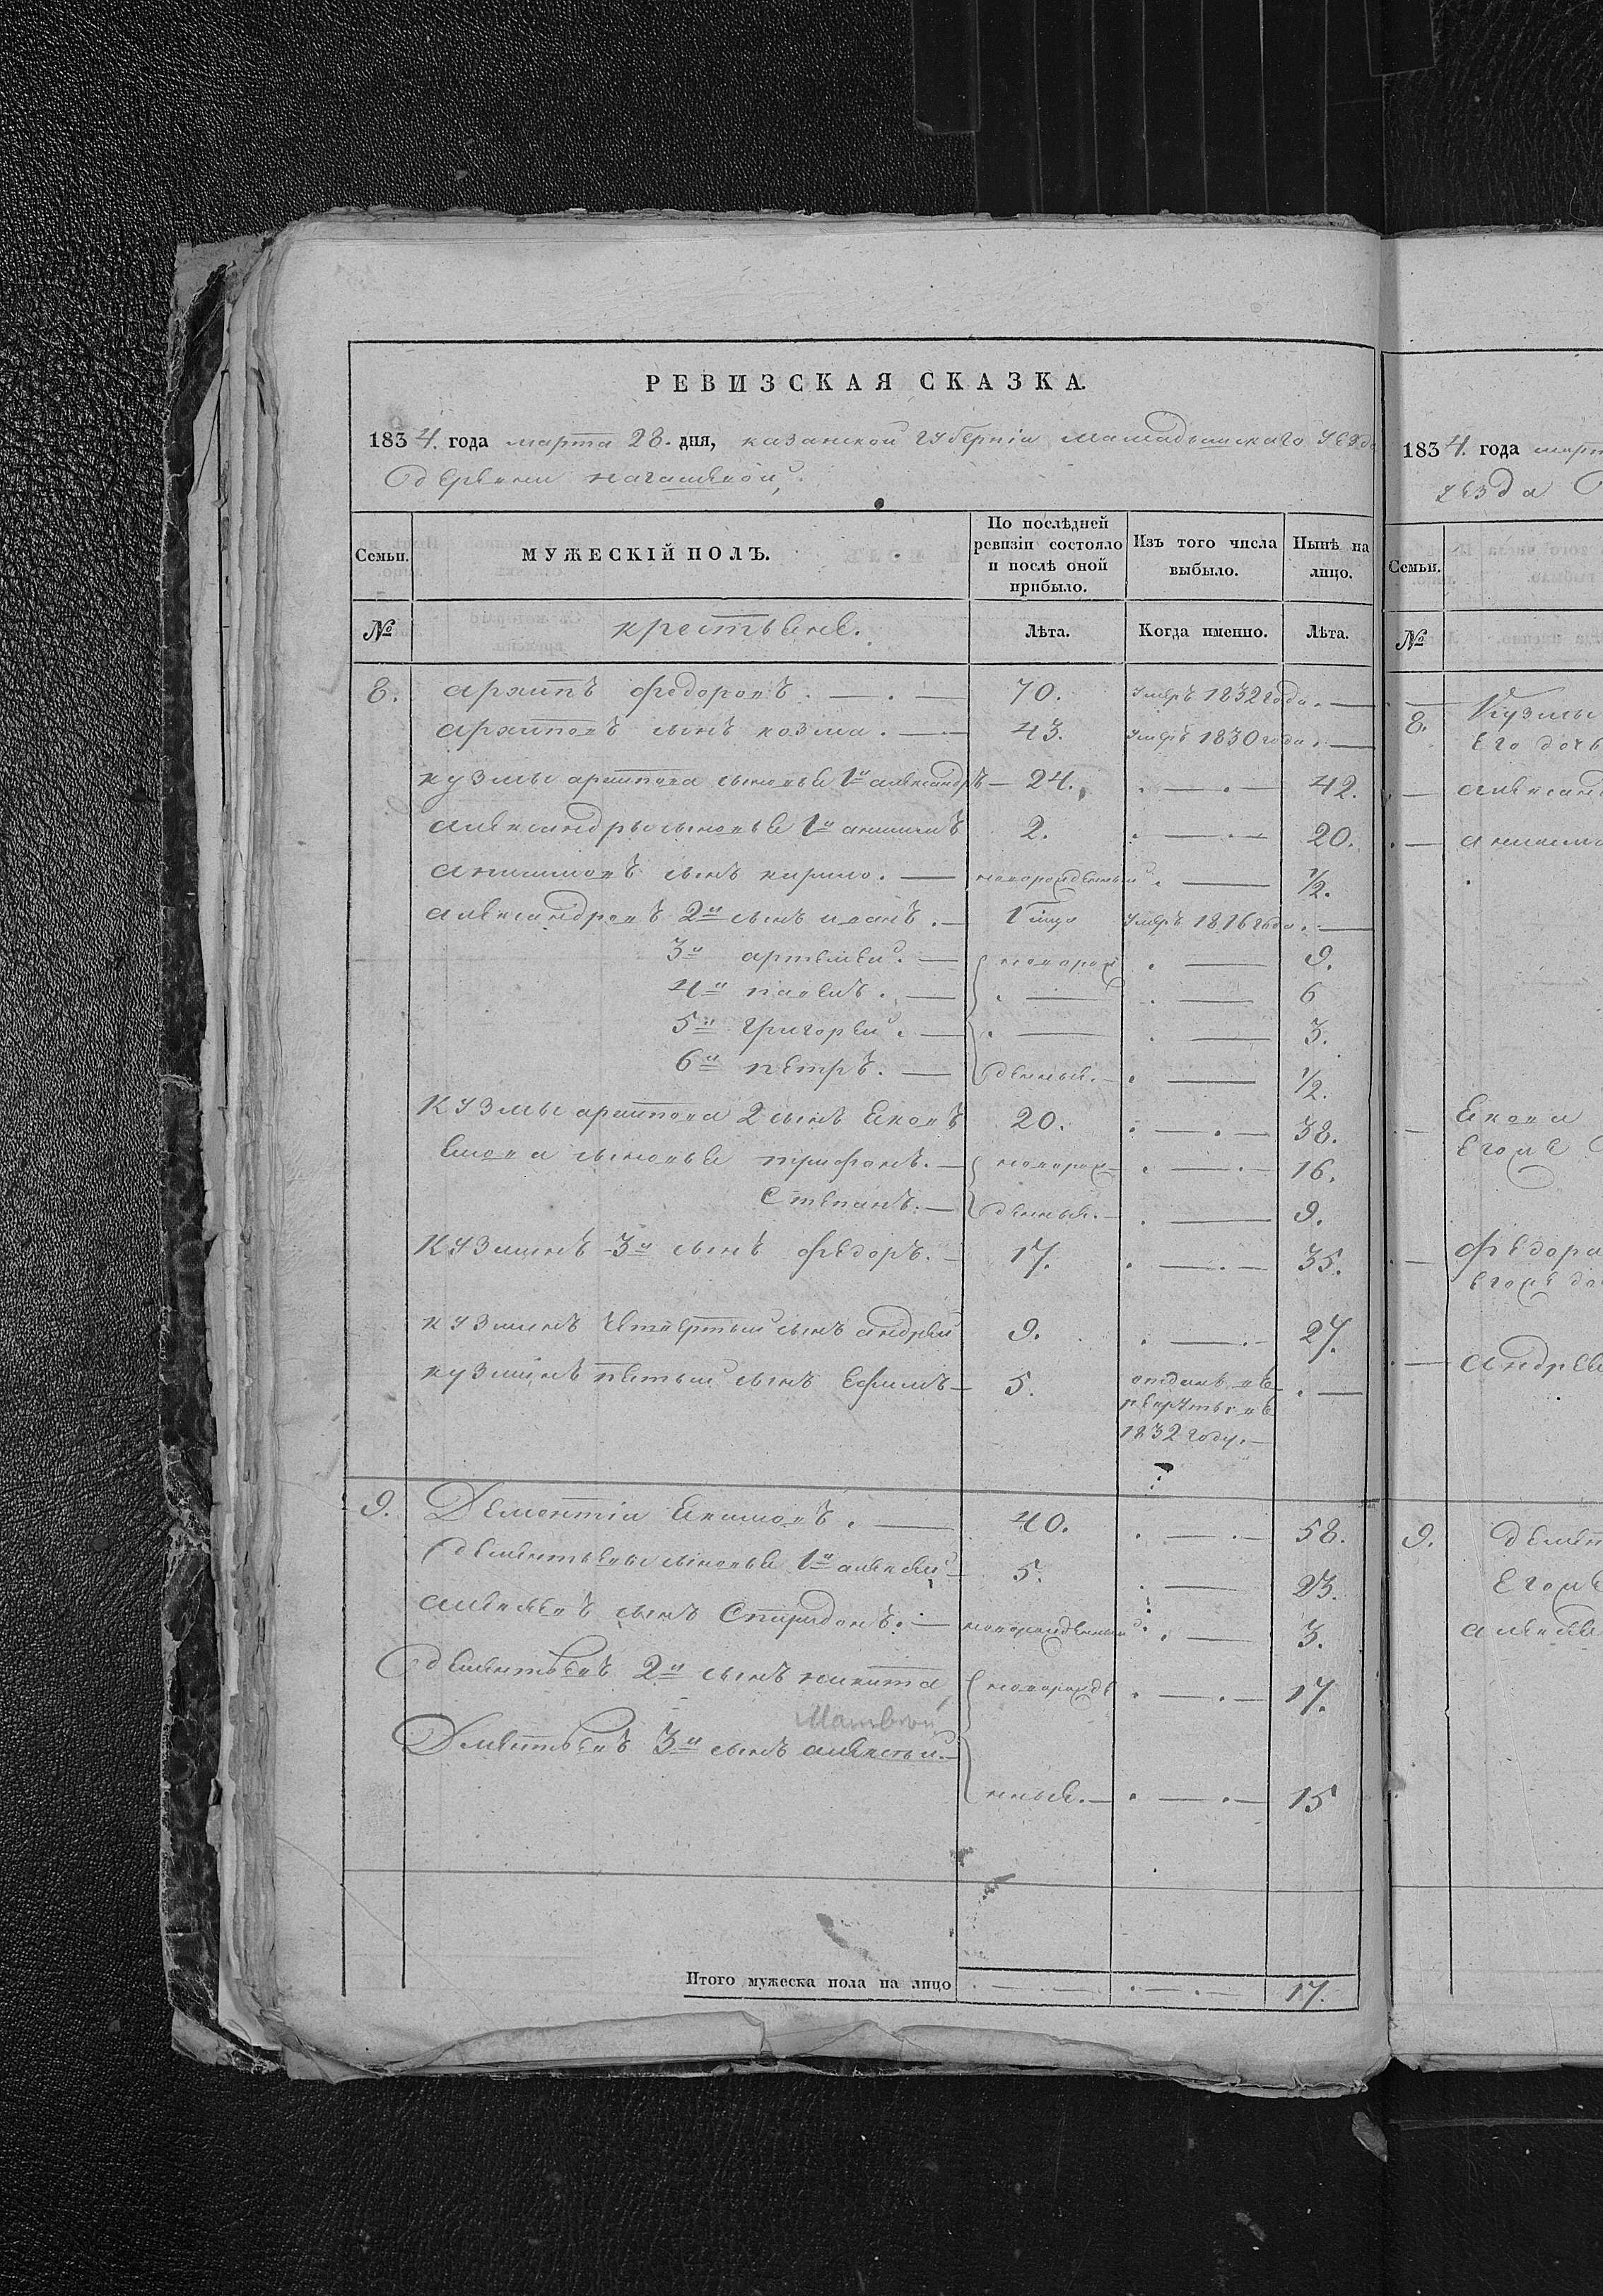 РЕВИЗСКАЯ СКАЗКА.
1834. года марта 28. дня, казанской губерніи мамадышскаго уезда
деревни
Семьи.
МУЖЕСКІЙ ПОЛЪ.
По послѣдней ревизіи состояло и послѣ оной прибыло.
Изъ того числа выбыло.
Нынѣ на лицо.
№
крестьяне.
Лѣта.
Когда именно.
Лѣта.
8. архипъ федоровъ. 70. умеръ 1832 года.
архиповъ сынъ козма. 43. умеръ 1830 года.
кузмы архипова сыновья 1й александръ 24. 42.
александры сыновья 1й анисимъ 2. 20.
анисимовъ сынъ кирило. новорожденный 1/2.
александровъ 2й сынъ иванъ. 1 умеръ 1816 года.
3й артемей. новорож 9.
4й павелъ. 6
5й григорей. 3.
6й петръ. денные. 1/2.
кузмы архипова 2 сынъ яковъ 20. 38.
якова сыновья трифонъ. новорож 16.
степанъ. денные. 9.
кузминъ 3й сынъ федоръ. 17. 35.
кузминъ четвертый сынъ андрей 9. 27.
кузминъ пятый сынъ ефимъ 5. отданъ въ
рекруты въ
1832 году.
9. Дементій якимовъ. 40. 58.
дементьевы сыновья 1й алексей 5. 23.
алексеевъ сынъ спиридонъ. новорожденный 3.
дементьевъ 2й сынъ никита новорожде 17.
Матвей
Дементьевъ 3й сынъ алексей.
нные. 15
Итого мужеска пола на лицо 17.
1834. года март
уезда
Семьи.
№
8. Кузмы
его доч
александ
якова
егоже
федора
егоже до
андрее
9. демен
егоже
алексее